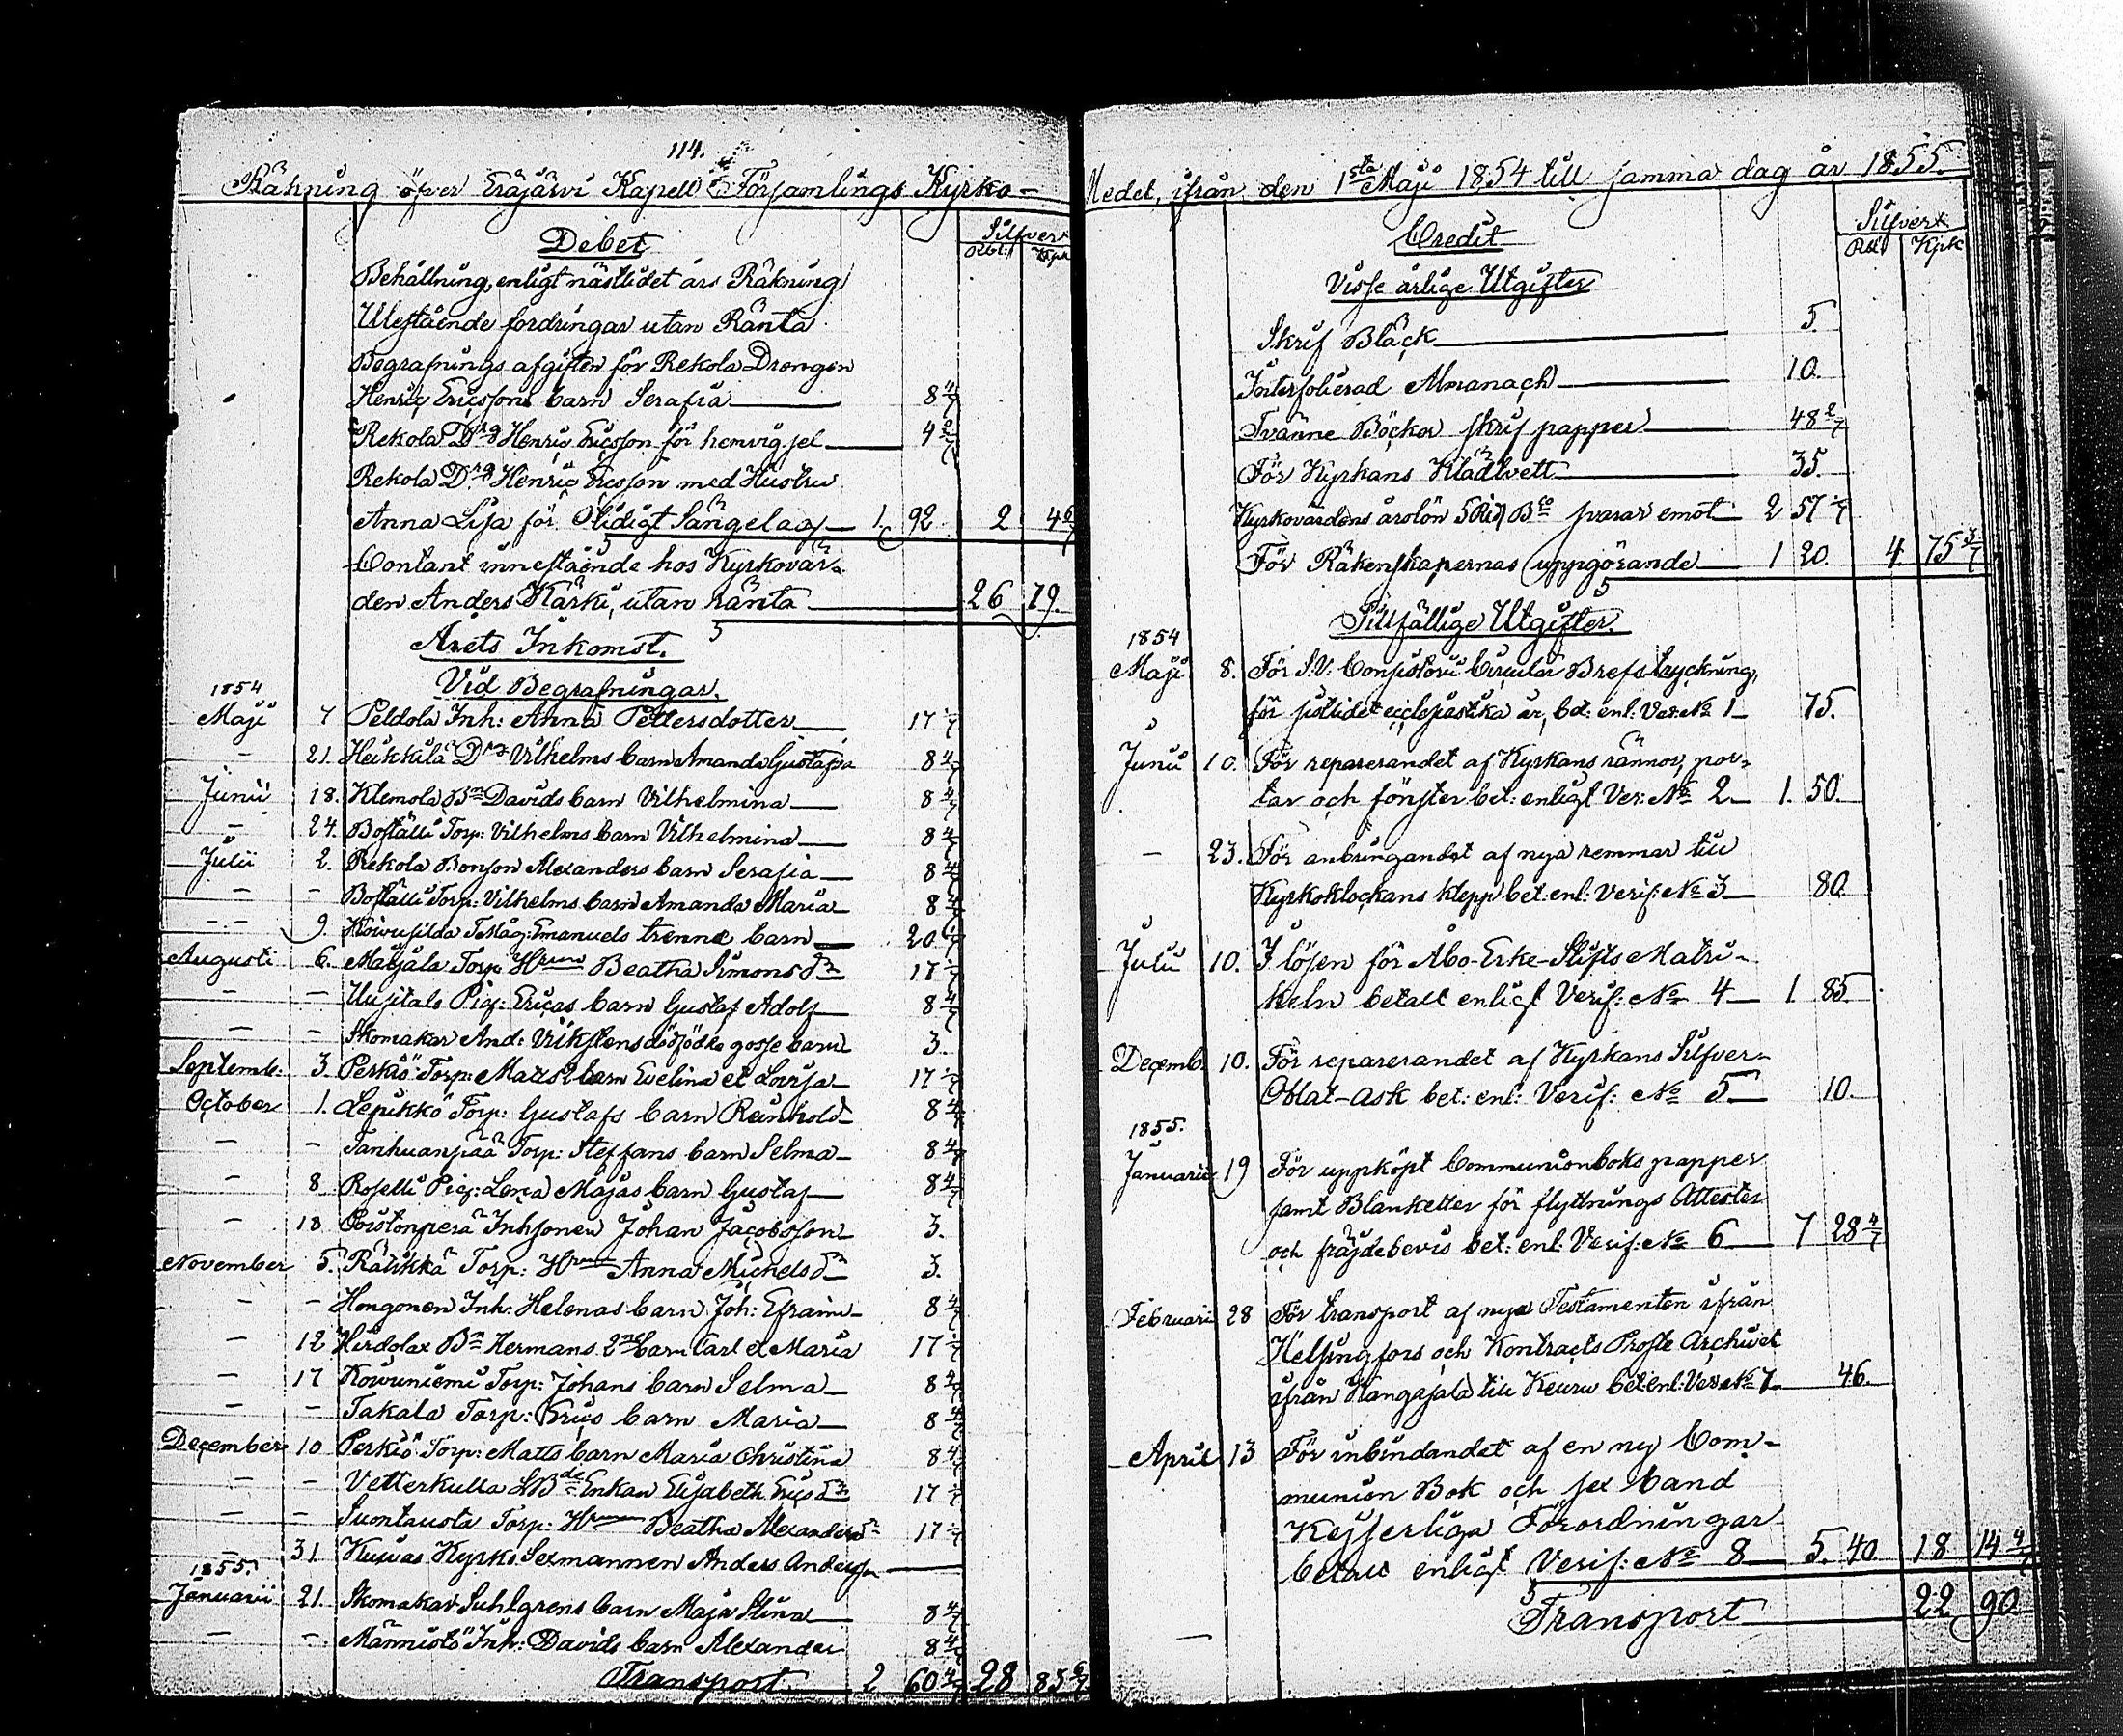 114.
Räkning öfver Eräjärvi Kapell Församlings Kyrko-
Debet
Silfver
Rbl: Kpk
Behållning, enligt nästlidet års Räkning
Utestående fordringar utan Ränta
Begrafnings afgiften för Rekola Drengen
Henric Ericssons barn Serafia 8 4/7
Rekola Dng Henric Ericsson för hemvigsel 4 2/7
Rekola Dng Henric Ericsson med Hustru
Anna Lisa för Otidigt Sängelag 1 92 2 4 6/7
Contant innestående hos Kyrkovär-
den Anders Kärki, utan ränta 26 79.
Årets Inkomst.
Vid Begrafningar.
1854
Maji 7 Peldola Inh: Anna Pettersdotter 17 1/7
- 21. Heikkilä Dng Vilhelms barn Amanda Gustafva 8 4/7
Junii 18. Klemola Bn Davids barn Vilhelmina 8 4/7
- 24. Boställi Torp: Vilhelms barn Vilhelmina 8 4/7
Julii 2. Rekola Bonson Alexanders barn Serafia 8 4/7
- - Boställi Torp: Vilhelms barn Amanda Maria 8 4/7
- - 9. Koivusilda Emanuels trenne barn 20
Augusti 6. Marjala Torp Hrun Beatha Simonsdr 17 1/7
- - Uusitalo Pig: Ericas barn Gustaf Adolf 8 4/7
- - Skomakar And: Vikstens dödfödde gosse barn 3.
Septemb: 3. Perkiö Torp: Matts 2 barn Evelina et Lovisa 17 1/7
October 1. Lepikkö Torp: Gustafs barn Reinhold 8 4/7
- - Tanhuanpää Torp: Steffans barn Selma 8 4/7
- 8 Roselli Pig: Lena Majas barn Gustaf 8 4/7
- 18 Inhsonen Johan Jacobsson 3.
November 5. Rälikkä Torp: Hrun Anna Michelsdr 3.
- - Hongonen Inh: Helenas barn Joh: Efraim 8 4/7
- 12 Hirdolax Bn Hermans 2ne barn Carl et Maria 17 1/7
- 17 Koivuniemi Torp: Johans barn Selma 8 4/7
- - Takala Torp: Erics barn Maria 8 4/7
December 10 Perkiö Torp: Matts barn Maria Christina 8 4/7
- - Vetterkulla Enkan Elisabeth Ericsdr 17 1/7
- - Suontausta Torp: Hrun Beatha Alexandersdr 17 1/7
- 31. Kuivas Kyrko Sexmannen Anders Andersson
1855.
Januarii 21. Skomakar Suhlgrens barn Maja Stina 8 4/7
- - Männistö Inh: Davids barn Alexander 8 4/7
Transport 2 60 4/7 28 83 6/7
Medel, ifrån den 1sta Maji 1854 till samma dag år 1855.
Credit
Silfver
Rbl Kpk
Visse årlige Utgifter
Skrif Bläck 5
Interfolierad Almanach 10.
Tvänne Böcker skrif papper 48 2/7
För Kyrkans Klädtvett 35.
Kyrkovärdens årslön 5 Rd Bco svarar emot 2 57 1/7
För Räkenskapernas uppgörande 1 20. 4 75 3/7
Tillfällige Utgifter.
1854
Maji 8. För S.V. Consistorii Circulär Brefs tryckning,
för sistlidet ecclesiastika år, bet: enl: Ver: No 1 75.
Junii 10. För reparerandet af Kyrkans rännor, por-
tar och fönster bet: enligt Ver: No 2 1. 50.
- 23. För anbringandet af nya remmar till
Kyrkoklockans klepp bet: enl: Verif: No 3 80.
Julii 10. I lösen för Åbo-Erke-Stifts Matri-
keln betalt enligt Verif: No 4 1 85
Decemb. 10. För reparerandet af Kyrkans Silfver-
Oblat-ask bet: enl: Verif: No 5 10.
1855.
Januarii 19 För uppköpt Communionboks papper
samt Blanketter för flyttnings Attester
och fräjdebevis bet: enl: Verif: No 6 7 28 4/7
Februari 28 För transport af nya Testamenten ifrån
Helsingfors och Kontracts Proste Archivet
ifrån Kangasala till Keuru bet: enl: Ver: No 7 46.
April 13 För inbindandet af en ny Com-
munion Bok och sex band
Kejserliga Förordningar
betalt enligt Verif: No 8 5. 40 18 14 4/7
Transport 22 90